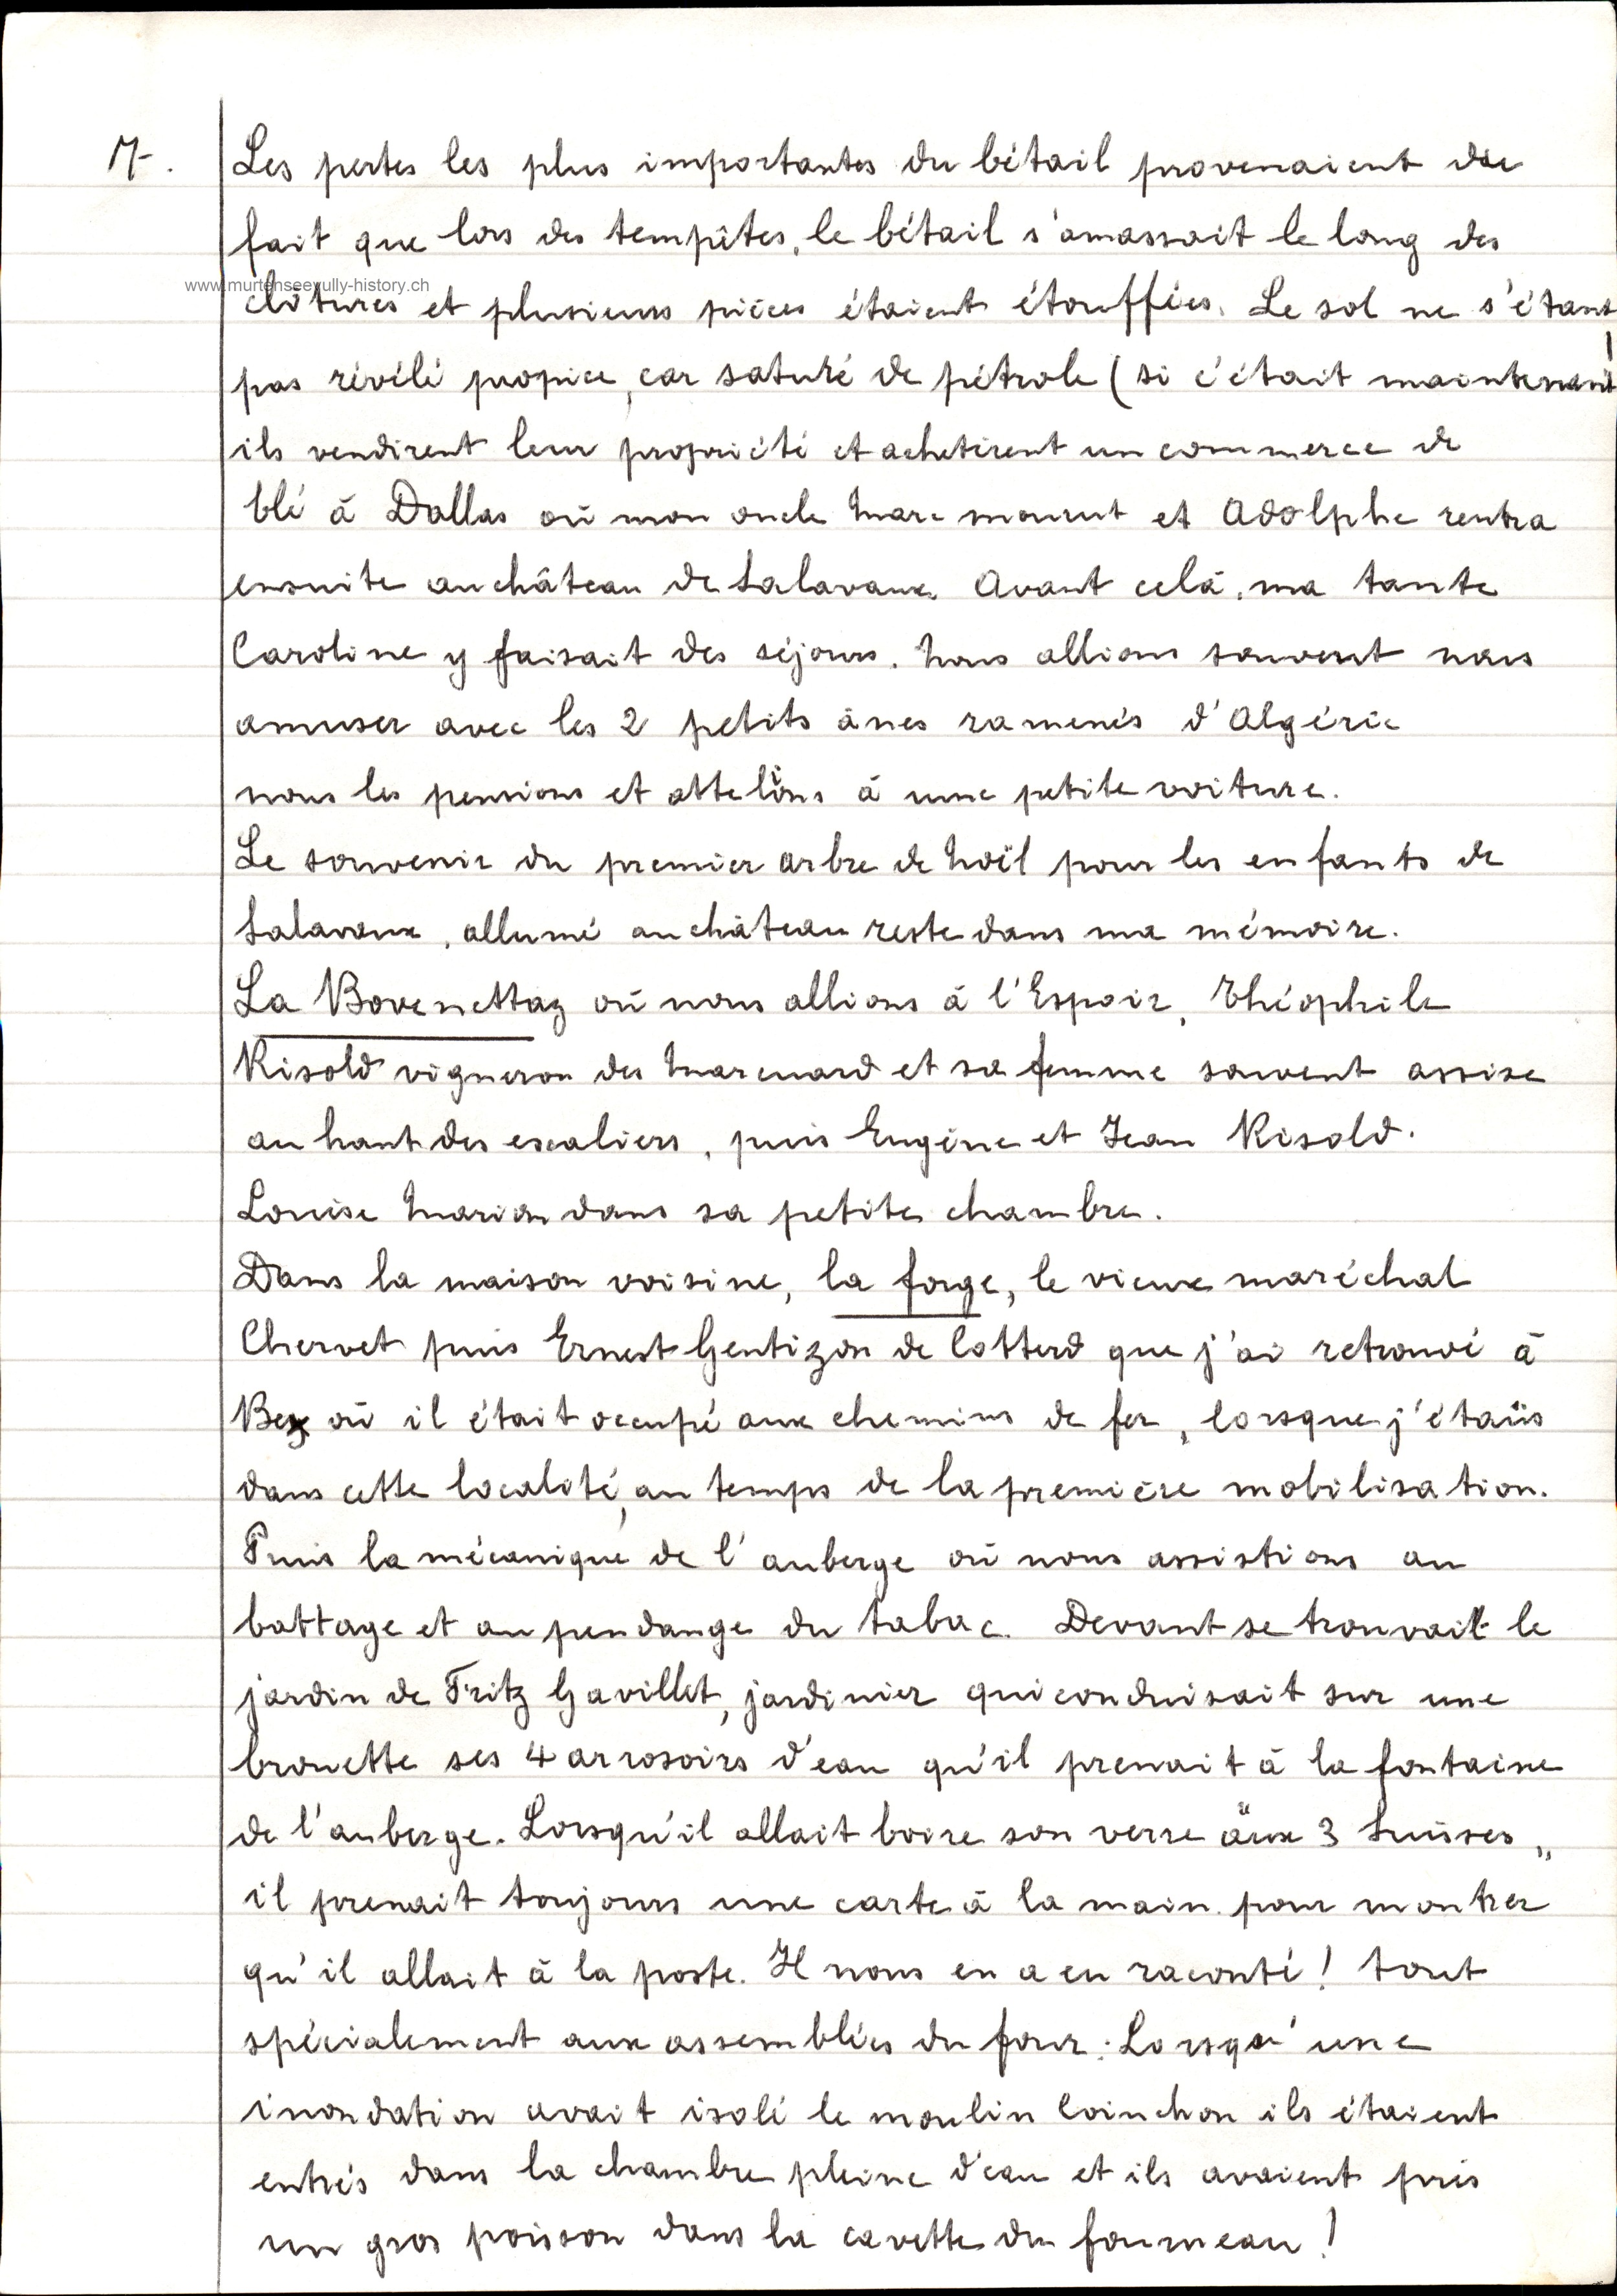 17.
Les pertes les plus importantes du bétail provenaient du
fait que lors des tempêtes, le bétail s'amassait le long des
www.murtenseevully-history.ch
clôtures et plusieurs pièces étaient étouffées. Le sol ne s'étant
pas révélé propice, car saturé de pétrole (si c'était maintenant!
ils vendirent leur propriété et achetèrent un commerce de
blé à Dallas où mon oncle Marc mourut et Adolphe rentra
ensuite au château de Salavaux. Avant celà, ma tante
Caroline y faisait des séjours. Nous allions souvent nous
amuser avec les 2 petits ânes ramenés d'Algérie
nous les pensions et attelions à une petite voiture.
Le souvenir du premier arbre de Noël pour les enfants de
Salavaux, allumé au château reste dans ma mémoire.
La Bovenettaz où nous allions à l'Espoir, Théophile
Risold vigneron des Marcuard et sa femme souvent assise
au haut des escaliers, puis Eugène et Jean Risold.
Louise Marion dans sa petite chambre.
Dans la maison voisine, la forge, le vieux maréchal
Chervet puis Ernest Gentizon de Cotterd que j'ai retrouvé à
Bex où il était occupé aux chemins de fer, lorsque j'étais
dans cette localité, au temps de la première mobilisation.
Puis la mécanique de l'auberge où nous assistions au
battage et au pendange du tabac. Devant se trouvait le
jardin de Fritz Gavillet, jardinier qui conduisait sur une
brouette ses 4 arrosoirs d'eau qu'il prenait à la fontaine
de l'auberge. Lorsqu'il allait boire son verre "aux 3 Suisses„
il prenait toujours une carte à la main pour montrer
qu'il allait à la poste. Il nous en a eu raconté! tout
spécialement aux assemblées du four: Lorsqu'une
inondation avait isolé le moulin Coinchon ils étaient
entrés dans la chambre pleine d'eau et ils avaient pris
un gros poisson dans la cavette du fourneau!